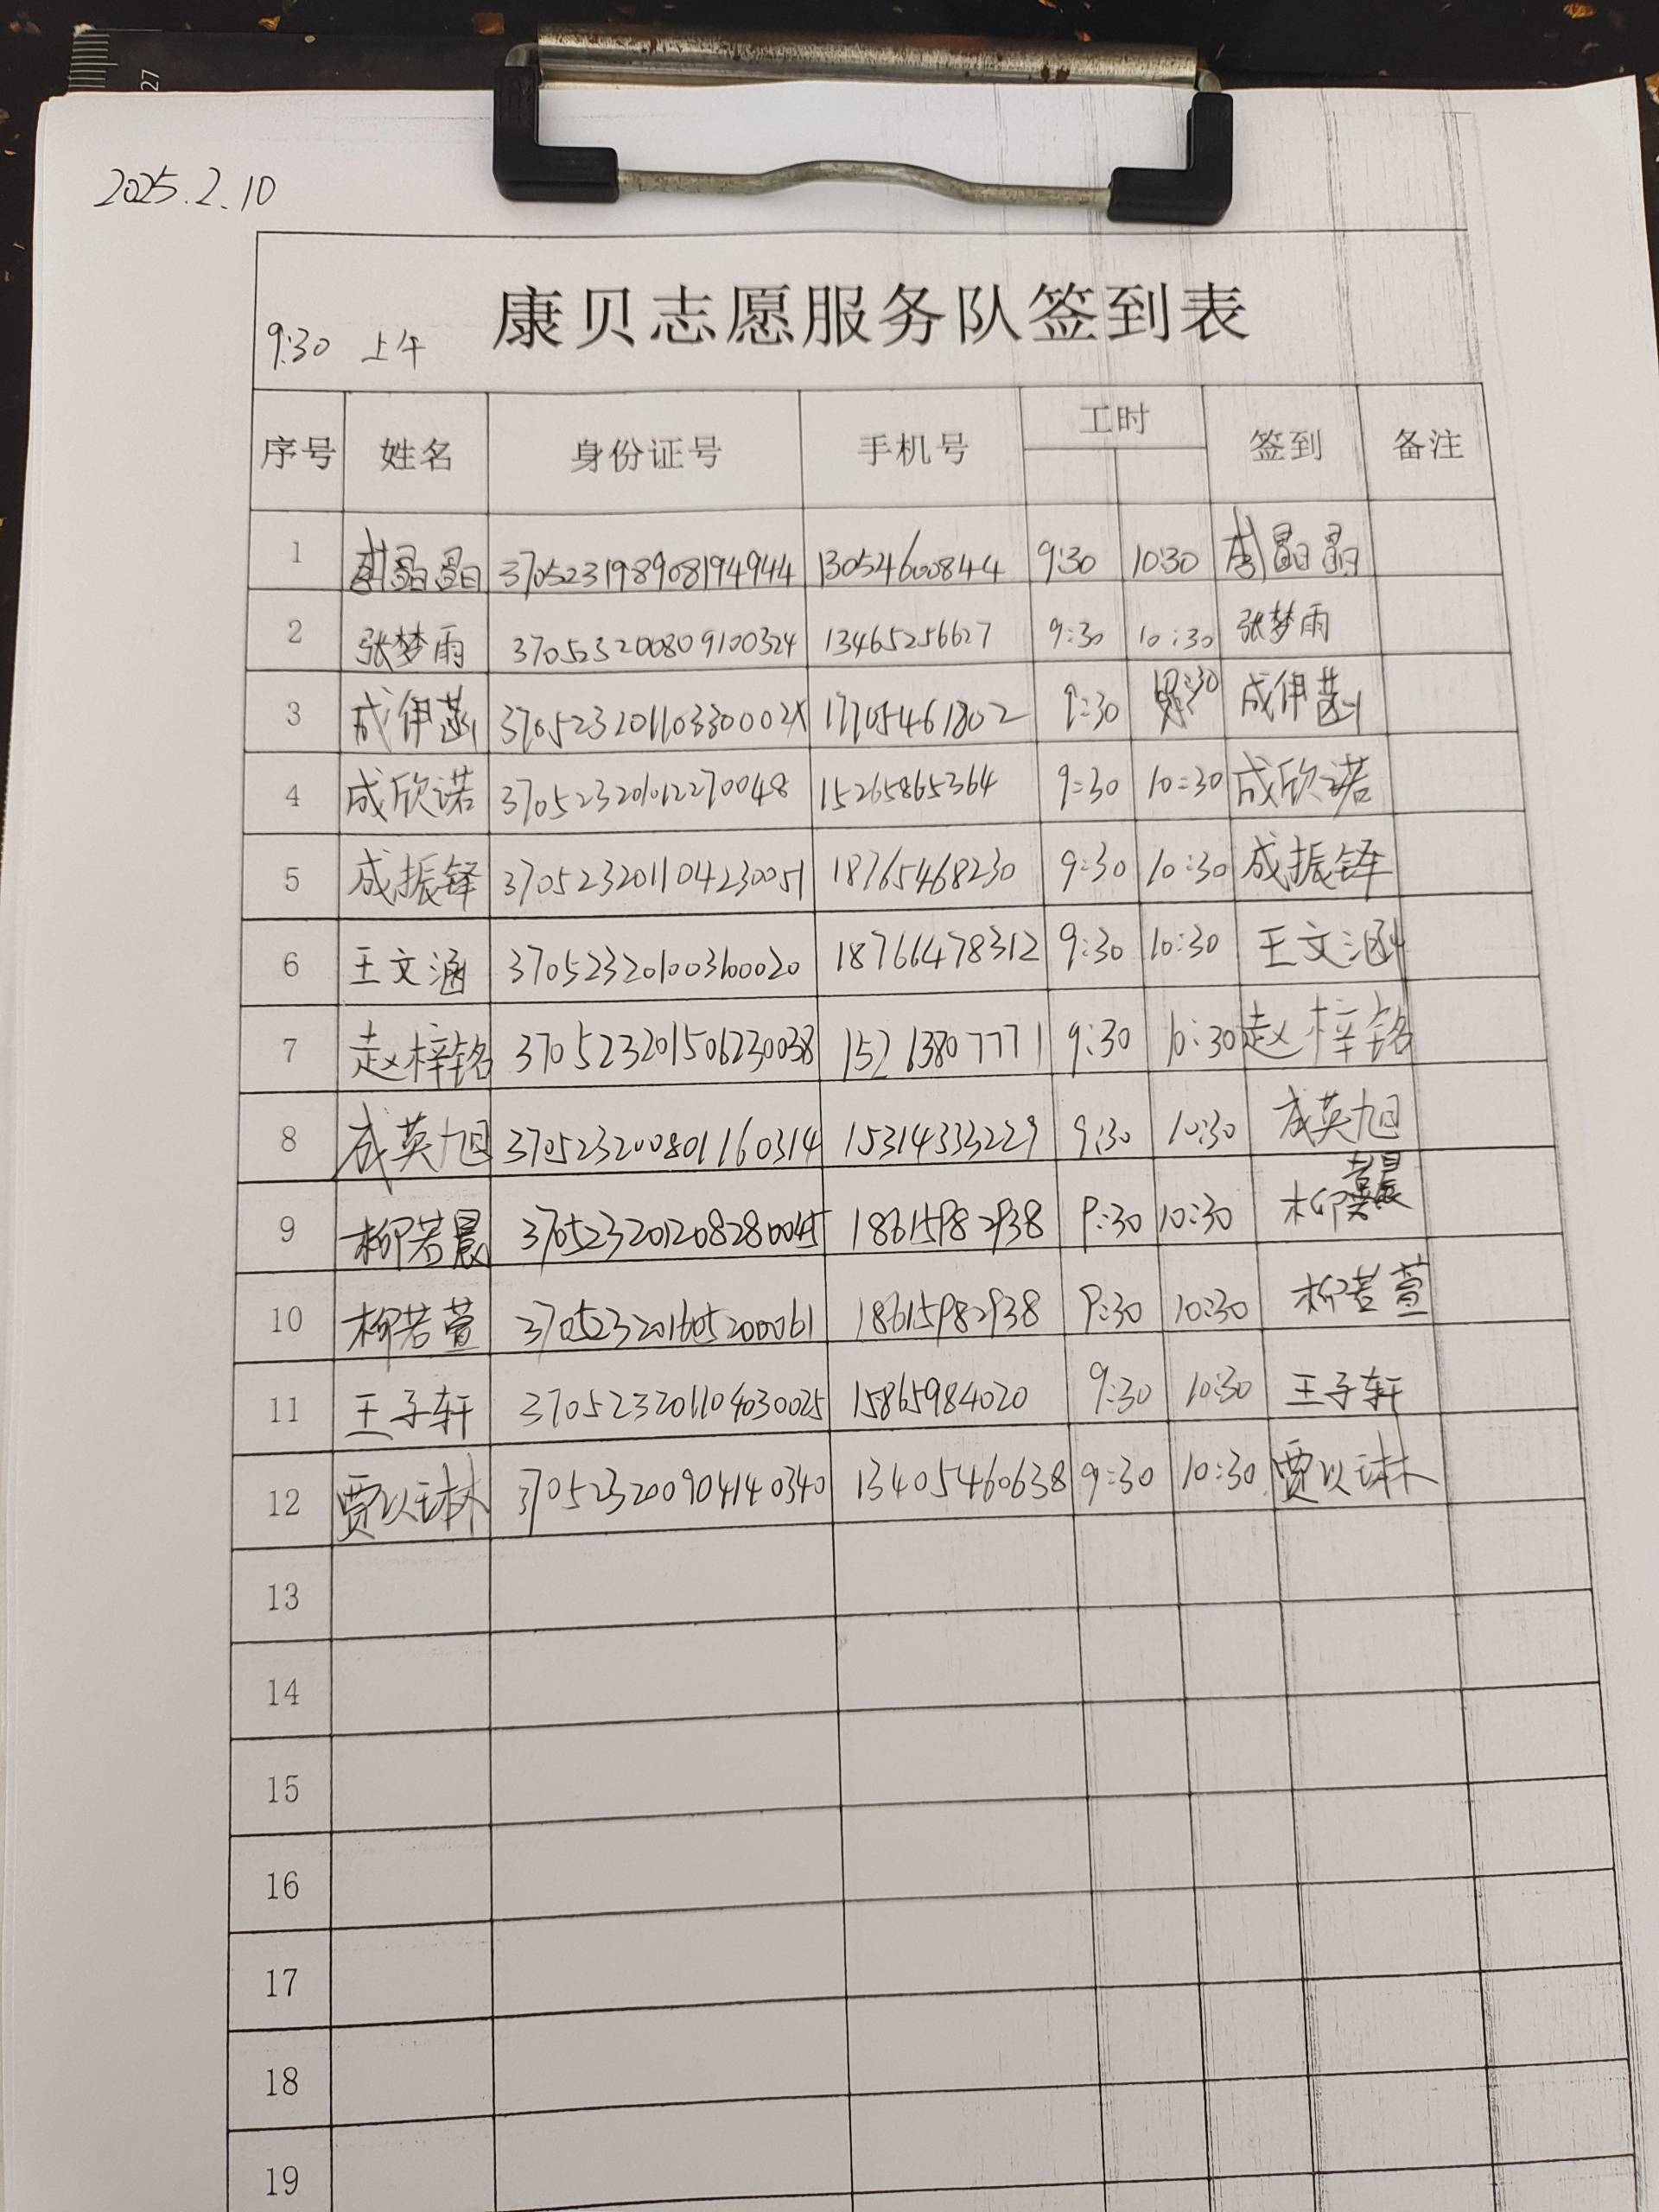 27
2025.2.10
康贝志愿服务队签到表
9:30 上午
序号 姓名 身份证号 手机号 工时 签到 备注
1 李晶晶 370523198908194944 13054600844 9:30 10:30 李晶晶
2 张梦雨 370523200809100324 13465256627 9:30 10:30 张梦雨
3 成伊菡 37052320110330002X 17705461802 9:30 10:30 成伊菡
4 成欣诺 370523201012270048 15265865364 9:30 10:30 成欣诺
5 成振铎 370523201104230051 18765468230 9:30 10:30 成振铎
6 王文涵 9:30 10:30 王文涵
7 赵梓铭 370523201506230038 15213807771 9:30 10:30 赵梓铭
8 成英旭 370523200801160314 15314333229 9:30 10:30 成英旭
9 柳若晨 370523201208280045 18615982938 9:30 10:30 柳若晨
10 柳若萱 370523201605200061 18615982938 9:30 10:30 柳若萱
11 王子轩 370523201104030025 15865984020 9:30 10:30 王子轩
12 贾以琳 370523200904140340 13405460638 9:30 10:30 贾以琳
13
14
15
16
17
18
19